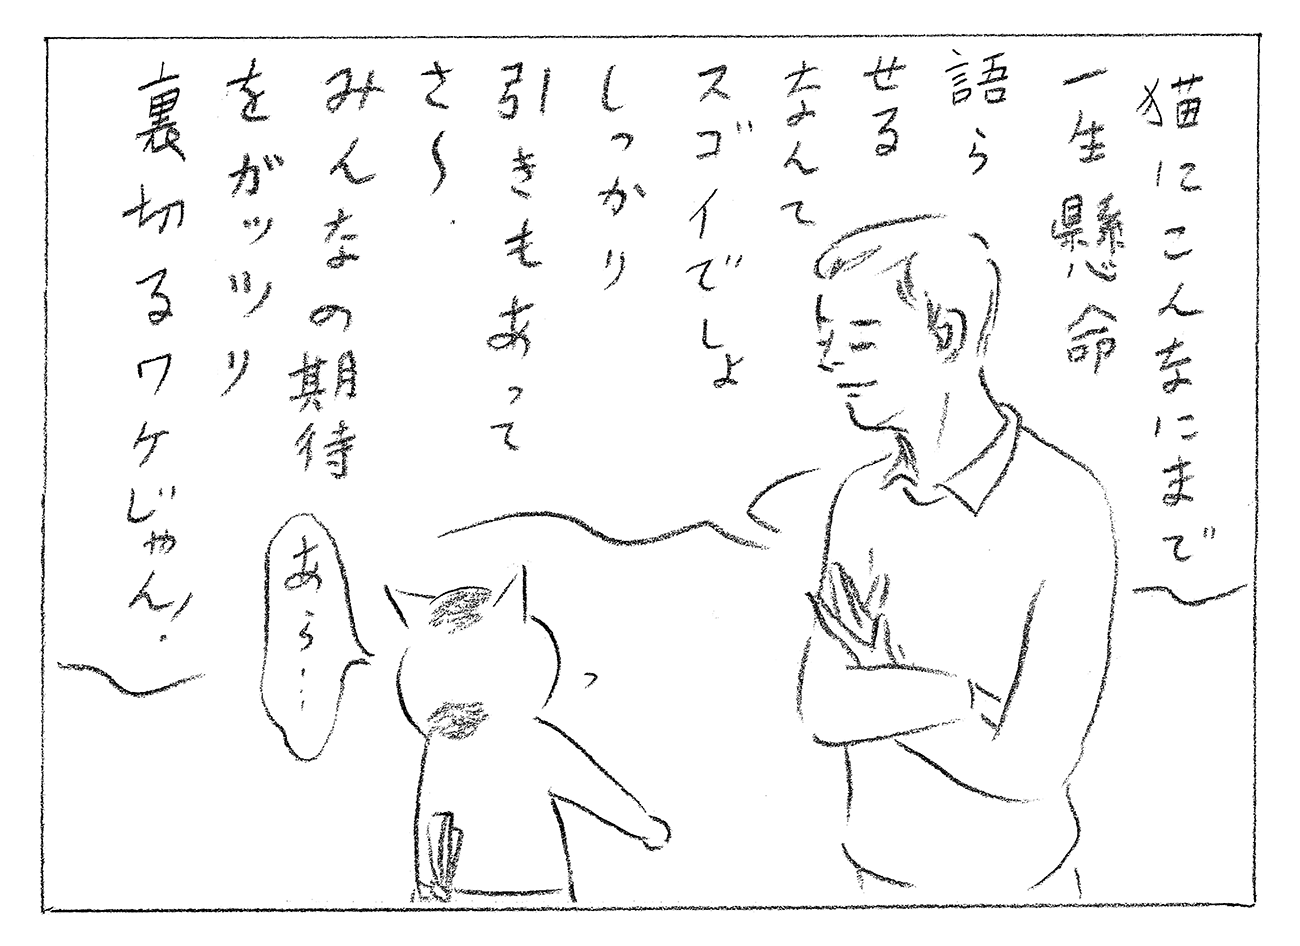 猫にこんなにまで
一生懸命
語ら
せる
なんて
スゴイでしょ
しっかり
引きもあって
さ〜.
みんなの期待
をガッツリ
裏切るワケじゃん!
あら…